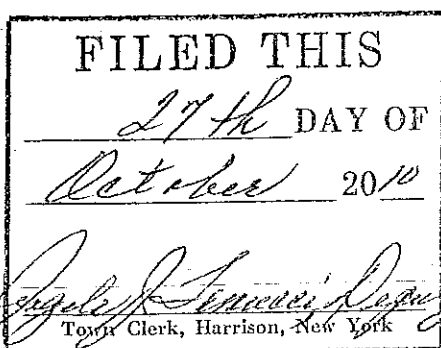 FILED THIS
27th DAY OF
October 2010
Town Clerk, Harrison, New York